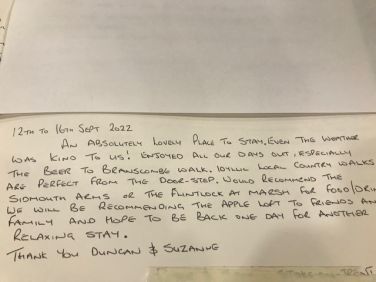 12TH TO 16TH SEPT 2022
AN ABSOLUTELY LOVELY PLACE TO STAY, EVEN THE WEATHER
WAS KIND TO US! ENJOYED ALL OUR DAYS OUT, ESPECIALLY
THE BEER TO BRANSCOMBE WALK. IDYLLIC LOCAL COUNTRY WALKS
ARE PERFECT FROM THE DOOR-STEP. WOULD RECOMMEND THE
SIDMOUTH ARMS OR THE FLINTLOCK AT MARSH FOR FOOD/DRIN
WE WILL BE RECOMMENDING THE APPLE LOFT TO FRIENDS AN
FAMILY AND HOPE TO BE BACK ONE DAY FOR ANOTHER
RELAXING STAY.
THANK YOU DUNCAN & SUZANNE